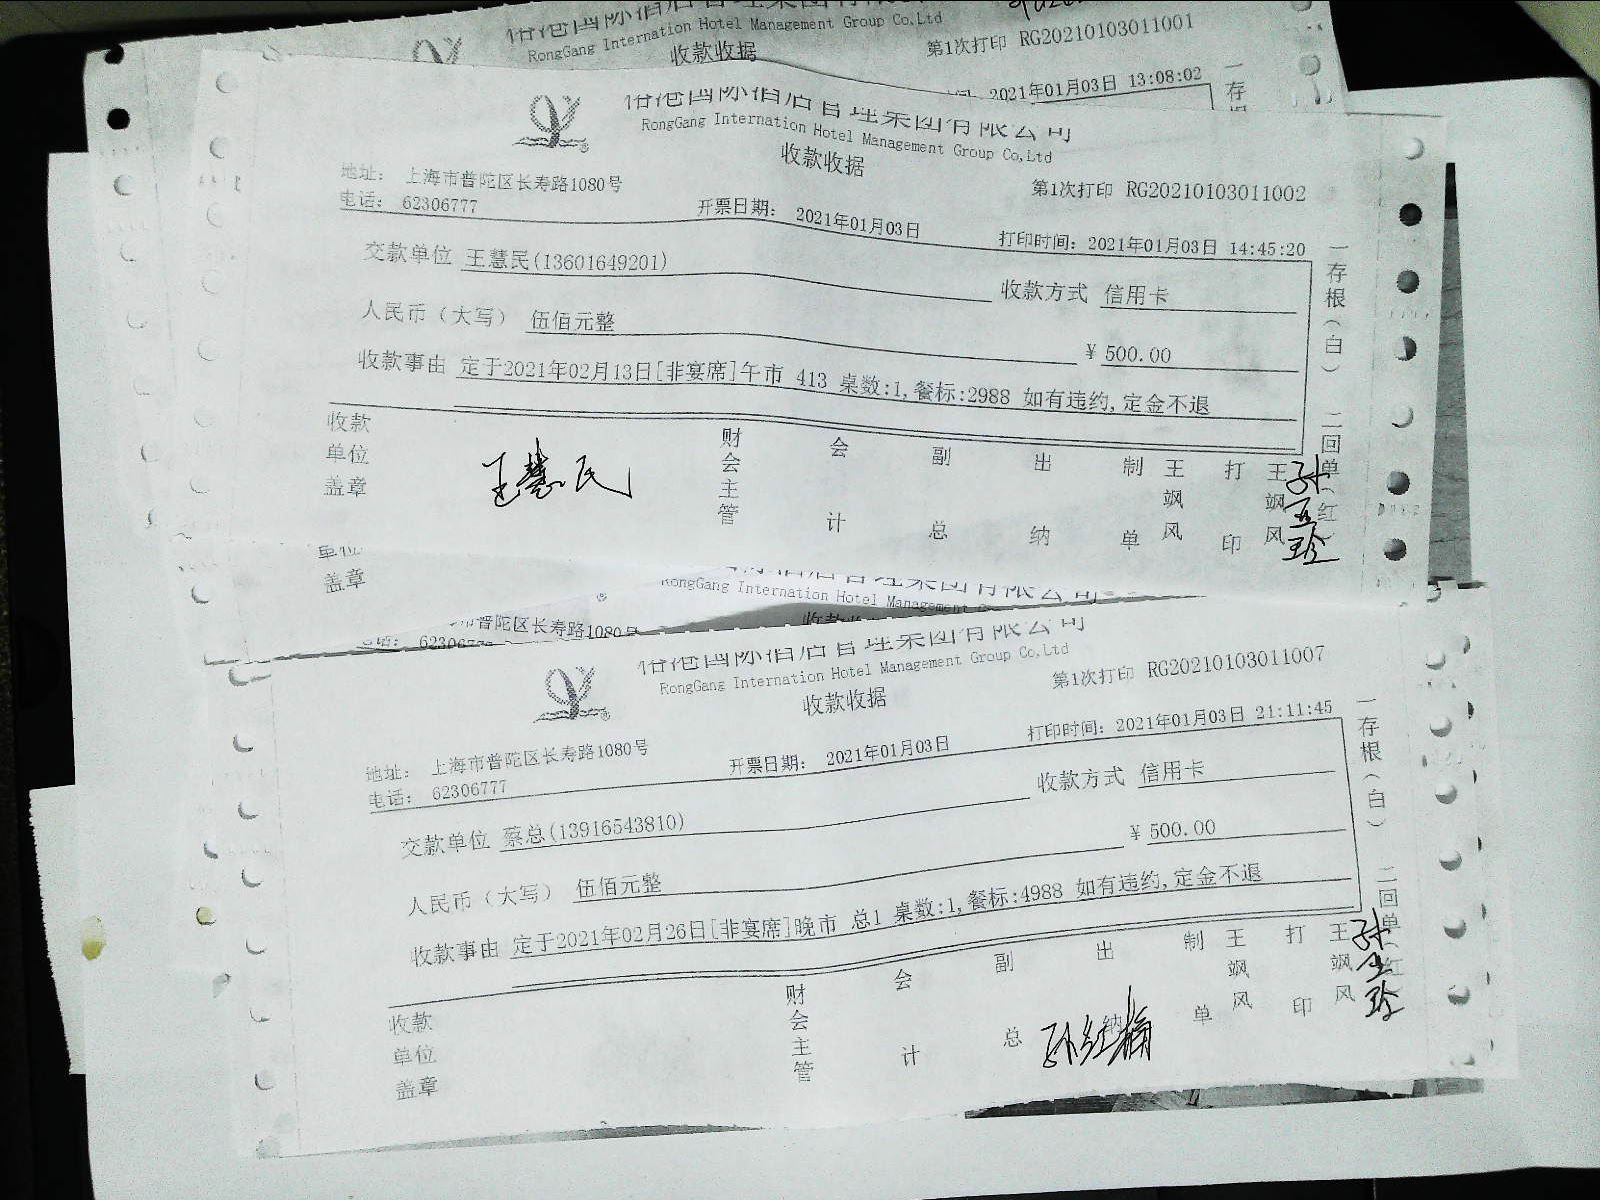 RongGang Internation Hotel Management Group Co,Ltd
收款收据
第1次打印 RG20210103011001
2021年01月03日 13:08:02
一存
RongGang Internation Hotel Management Group Co,Ltd
收款收据
地址: 上海市普陀区长寿路1080号
第1次打印 RG20210103011002
电话: 62306777
开票日期: 2021年01月03日
打印时间: 2021年01月03日 14:45:20
交款单位 王慧民(13601649201)
收款方式 信用卡
人民币（大写） 伍佰元整
¥ 500.00
收款事由 定于2021年02月13日[非宴席]午市 413 桌数:1,餐标:2988 如有违约,定金不退
一存根（白） 二回单（红
收款单位盖章
王慧民
财会主管
会计
副总
出纳
制单
王飒风
打印
王飒风
单位
盖章
RongGang Internation Hotel Management
普陀区长寿路1080号
电话: 62306777
RongGang Internation Hotel Management Group Co,Ltd
收款收据
第1次打印 RG20210103011007
地址: 上海市普陀区长寿路1080号
电话: 62306777
开票日期: 2021年01月03日
打印时间: 2021年01月03日 21:11:45
交款单位 蔡总(13916543810)
收款方式 信用卡
人民币（大写） 伍佰元整
¥ 500.00
收款事由 定于2021年02月26日[非宴席]晚市 总1 桌数:1,餐标:4988 如有违约,定金不退
一存根（白） 二回单（红
收款单位盖章
财会主管
会计
副总
出纳
制单
王飒风
打印
王飒风